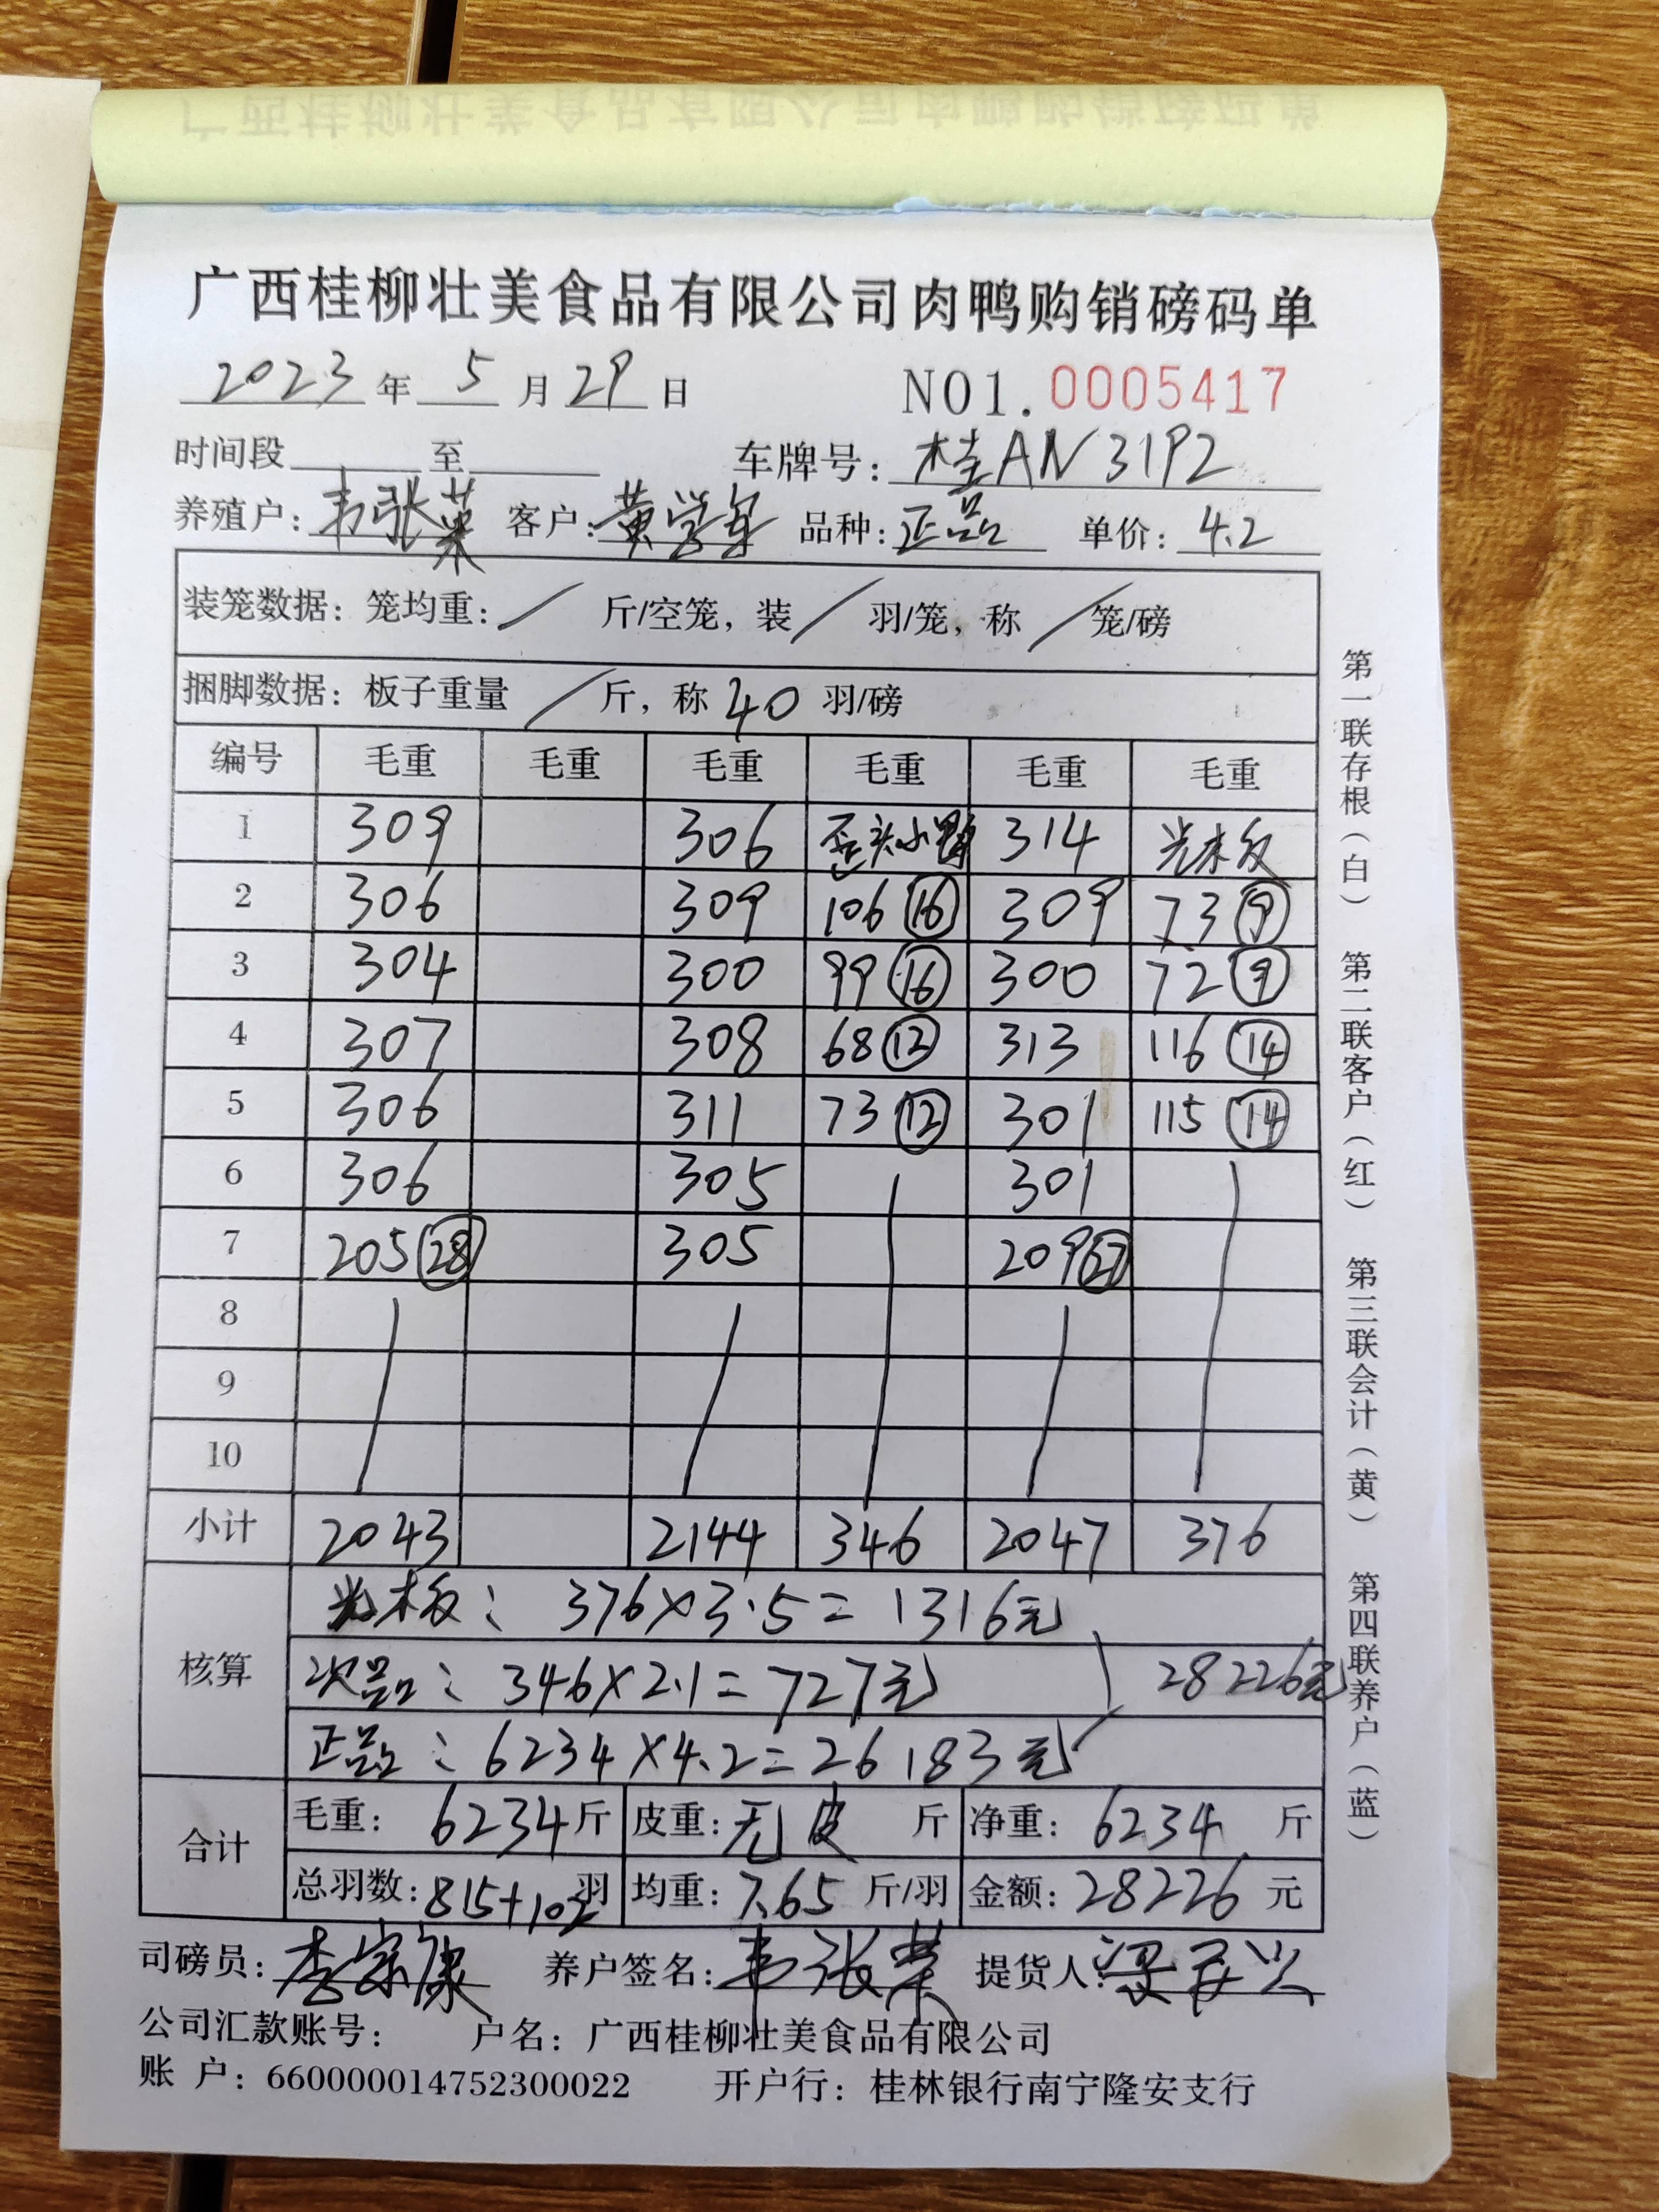 广西桂柳壮美食品有限公司肉鸭购销磅码单
2023年 5 月 29 日 NO1. 0005417
时间段 至 车牌号: 桂AN3192
养殖户: 韦张荣 客户: 黄学军 品种: 正品 单价: 4.2
装笼数据: 笼均重: / 斤/空笼, 装 / 羽/笼, 称 / 笼/磅
捆脚数据: 板子重量 / 斤, 称 40 羽/磅
编号 毛重 毛重 毛重 毛重 毛重 毛重
1 309 306 歪头小鸭 314 光木板
2 306 309 106 ⑯ 309 73 ⑨
3 304 300 99 ⑯ 300 72 ⑨
4 307 308 68 ⑫ 313 116 ⑭
5 306 311 73 ⑫ 301 115 ⑭
6 306 305 301
7 205 ㉘ 305 209 ㉗
8
9
10
小计 2043 2144 346 2047 376
核算
光木板: 376×3.5=1316元
次品: 346×2.1=727元 28226元
正品: 6234×4.2=26183元
合计
毛重: 6234斤 皮重: 无皮 斤 净重: 6234 斤
总羽数: 815+102羽 均重: 7.65 斤/羽 金额: 28226 元
司磅员: 李宗康 养户签名: 韦张荣 提货人: 梁
公司汇款账号: 户名: 广西桂柳壮美食品有限公司
账 户: 660000014752300022 开户行: 桂林银行南宁隆安支行
第一联存根(白) 第二联客户(红) 第三联会计(黄) 第四联养户(蓝)
广西桂柳壮美食品有限公司肉鸭购销磅码单